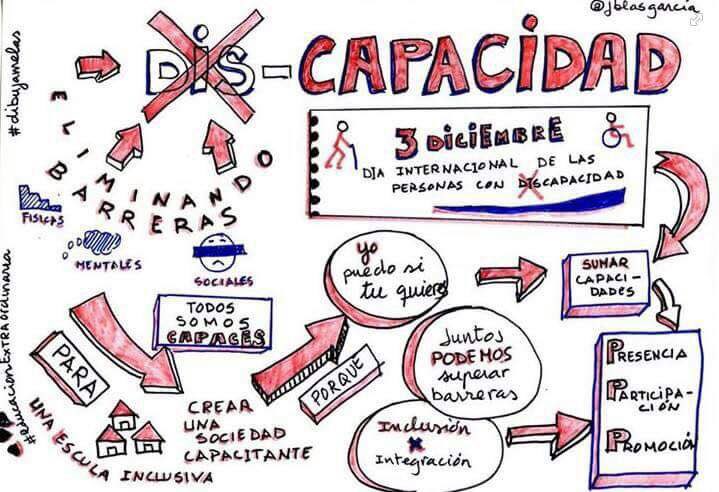 @jblasgarcia
DIS-CAPACIDAD
#dibujamelas
ELIMINANDO
BARRERAS
FISICAS
MENTALES
SOCIALES
3 DICIEMBRE
DIA INTERNACIONAL DE LAS
PERSONAS CON DISCAPACIDAD
#EducaciónEXTRAordinaria
TODOS
SOMOS
CAPACES
yo
puedo si
tu quieres
SUMAR
CAPACI-
DADES
PARA
PORQUE
Juntos
PODEMOS
superar
barreras
PRESENCIA
PARTICIPA-
CIÓN
PROMOCIÓN
UNA ESCULA INCLUSIVA
CREAR
UNA
SOCIEDAD
CAPACITANTE
Inclusión
x
Integración